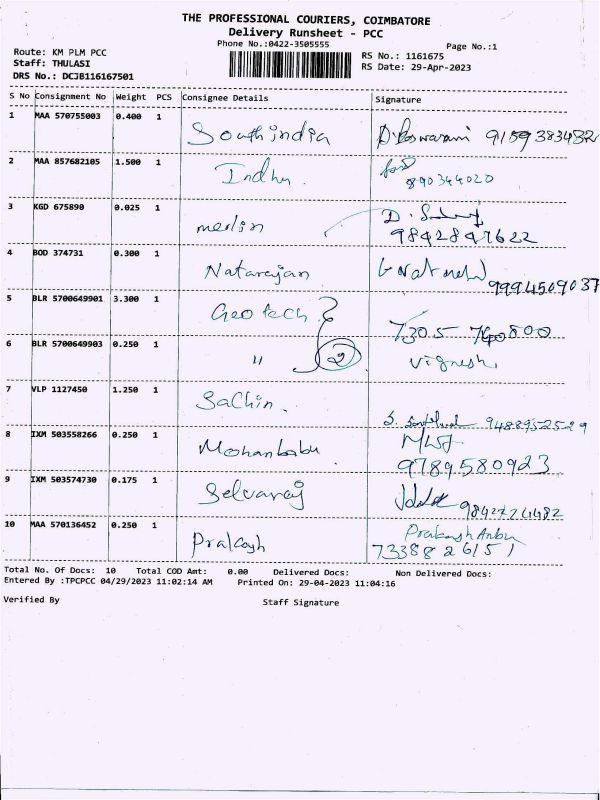 THE PROFESSIONAL COURIERS, COIMBATORE
Delivery Runsheet - PCC
Phone No.:0422-3505555
Page No.:1
Route: KM PLM PCC
Staff: THULASI
DRS No.: DCJB116167501
RS No.: 1161675
RS Date: 29-Apr-2023
S No Consignment No Weight PCS Consignee Details Signature
1 MAA 570755003 0.400 1 South india 9159383432
2 MAA 857682105 1.500 1 Indhu.
890344020
3 KGD 675890 0.025 1 merlin
9842847622
4 BOD 374731 0.300 1 Natarajan
9994509037
5 BLR 5700649901 3.300 1 Geotech
7305 740800
6 BLR 5700649903 0.250 1 " 2 Vignesh.
7 VLP 1127450 1.250 1 Sachin.
9488952529
8 IXM 503558266 0.250 1 Mohanbabu
9789580923
9 IXM 503574730 0.175 1 Selvaraj
10 MAA 570136452 0.250 1 Prakash Prakash Anbu
7338826151
Total No. Of Docs: 10 Total COD Amt: 0.00 Delivered Docs: Non Delivered Docs:
Entered By :TPCPCC 04/29/2023 11:02:14 AM Printed On: 29-04-2023 11:04:16
Verified By Staff Signature